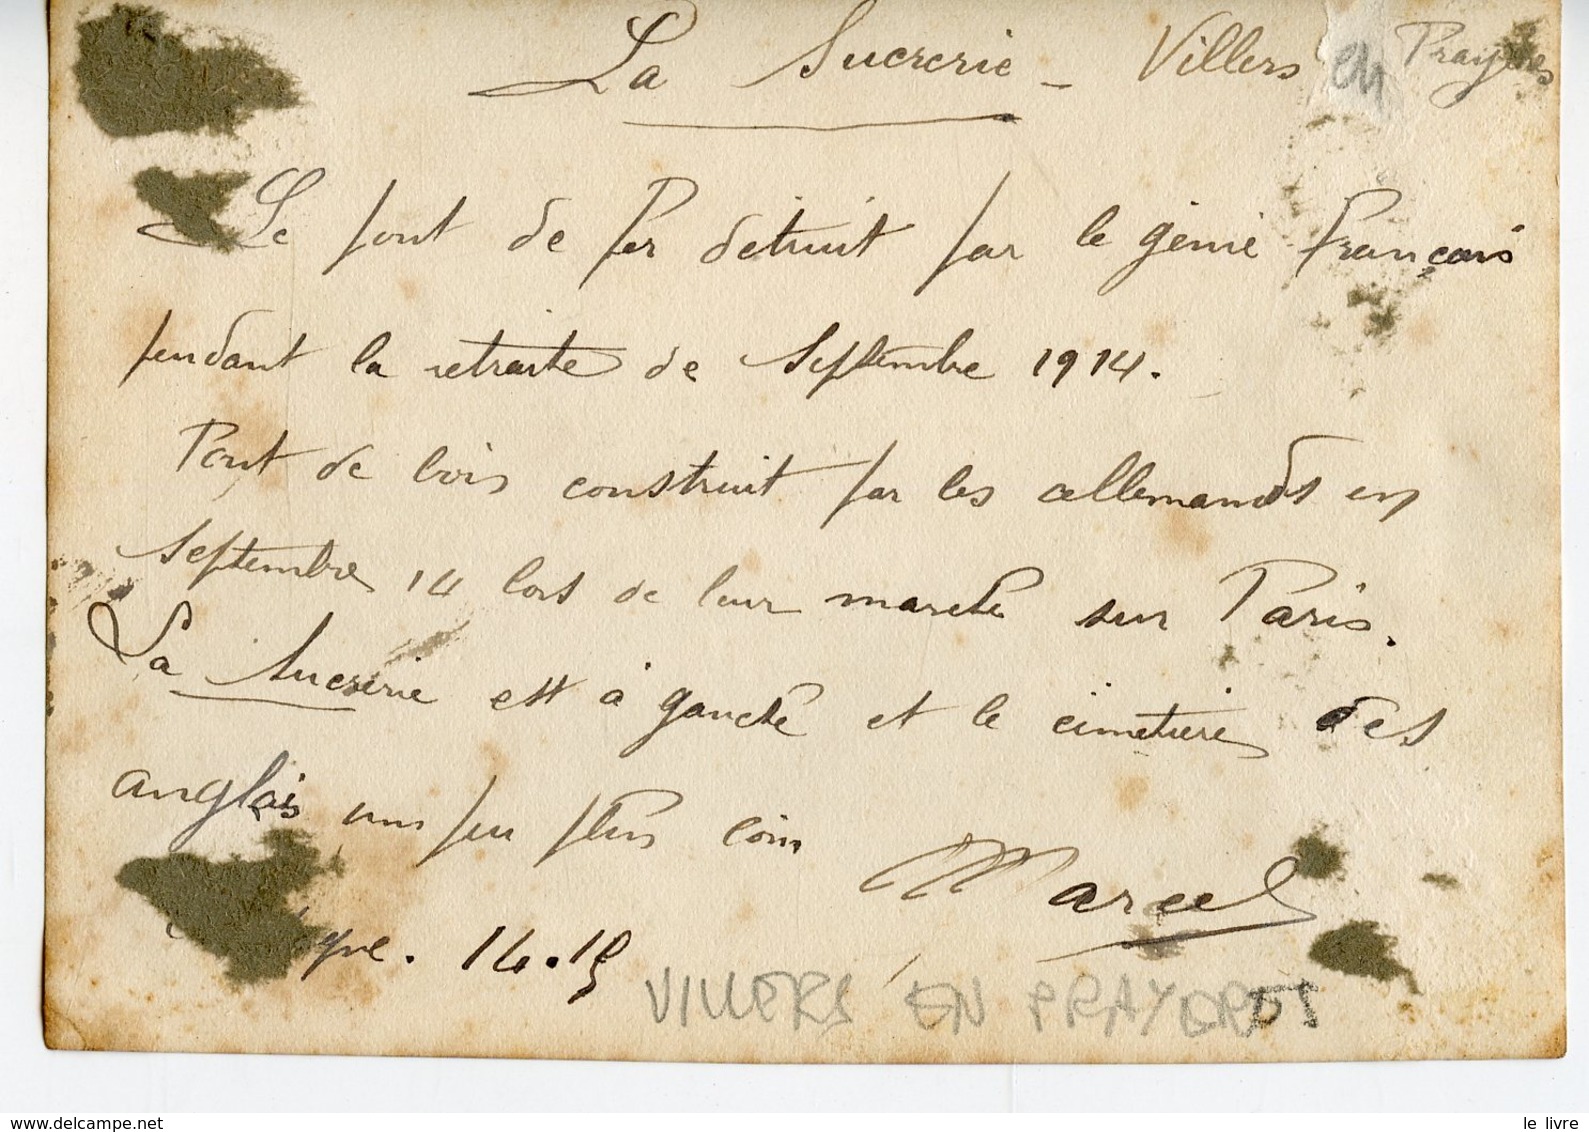 La Sucrerie - Villers en Prayères
Le pont de fer détruit par le génie français
pendant la retraite de Septembre 1914.
Pont de bois construit par les allemands en
Septembre 14 lors de leur marche sur Paris.
La Sucrerie est à gauche et le cimetière des
anglais un peu plus loin
Marcel
14.15
VILLERS EN PRAYERES
www.delcampe.net
le livre